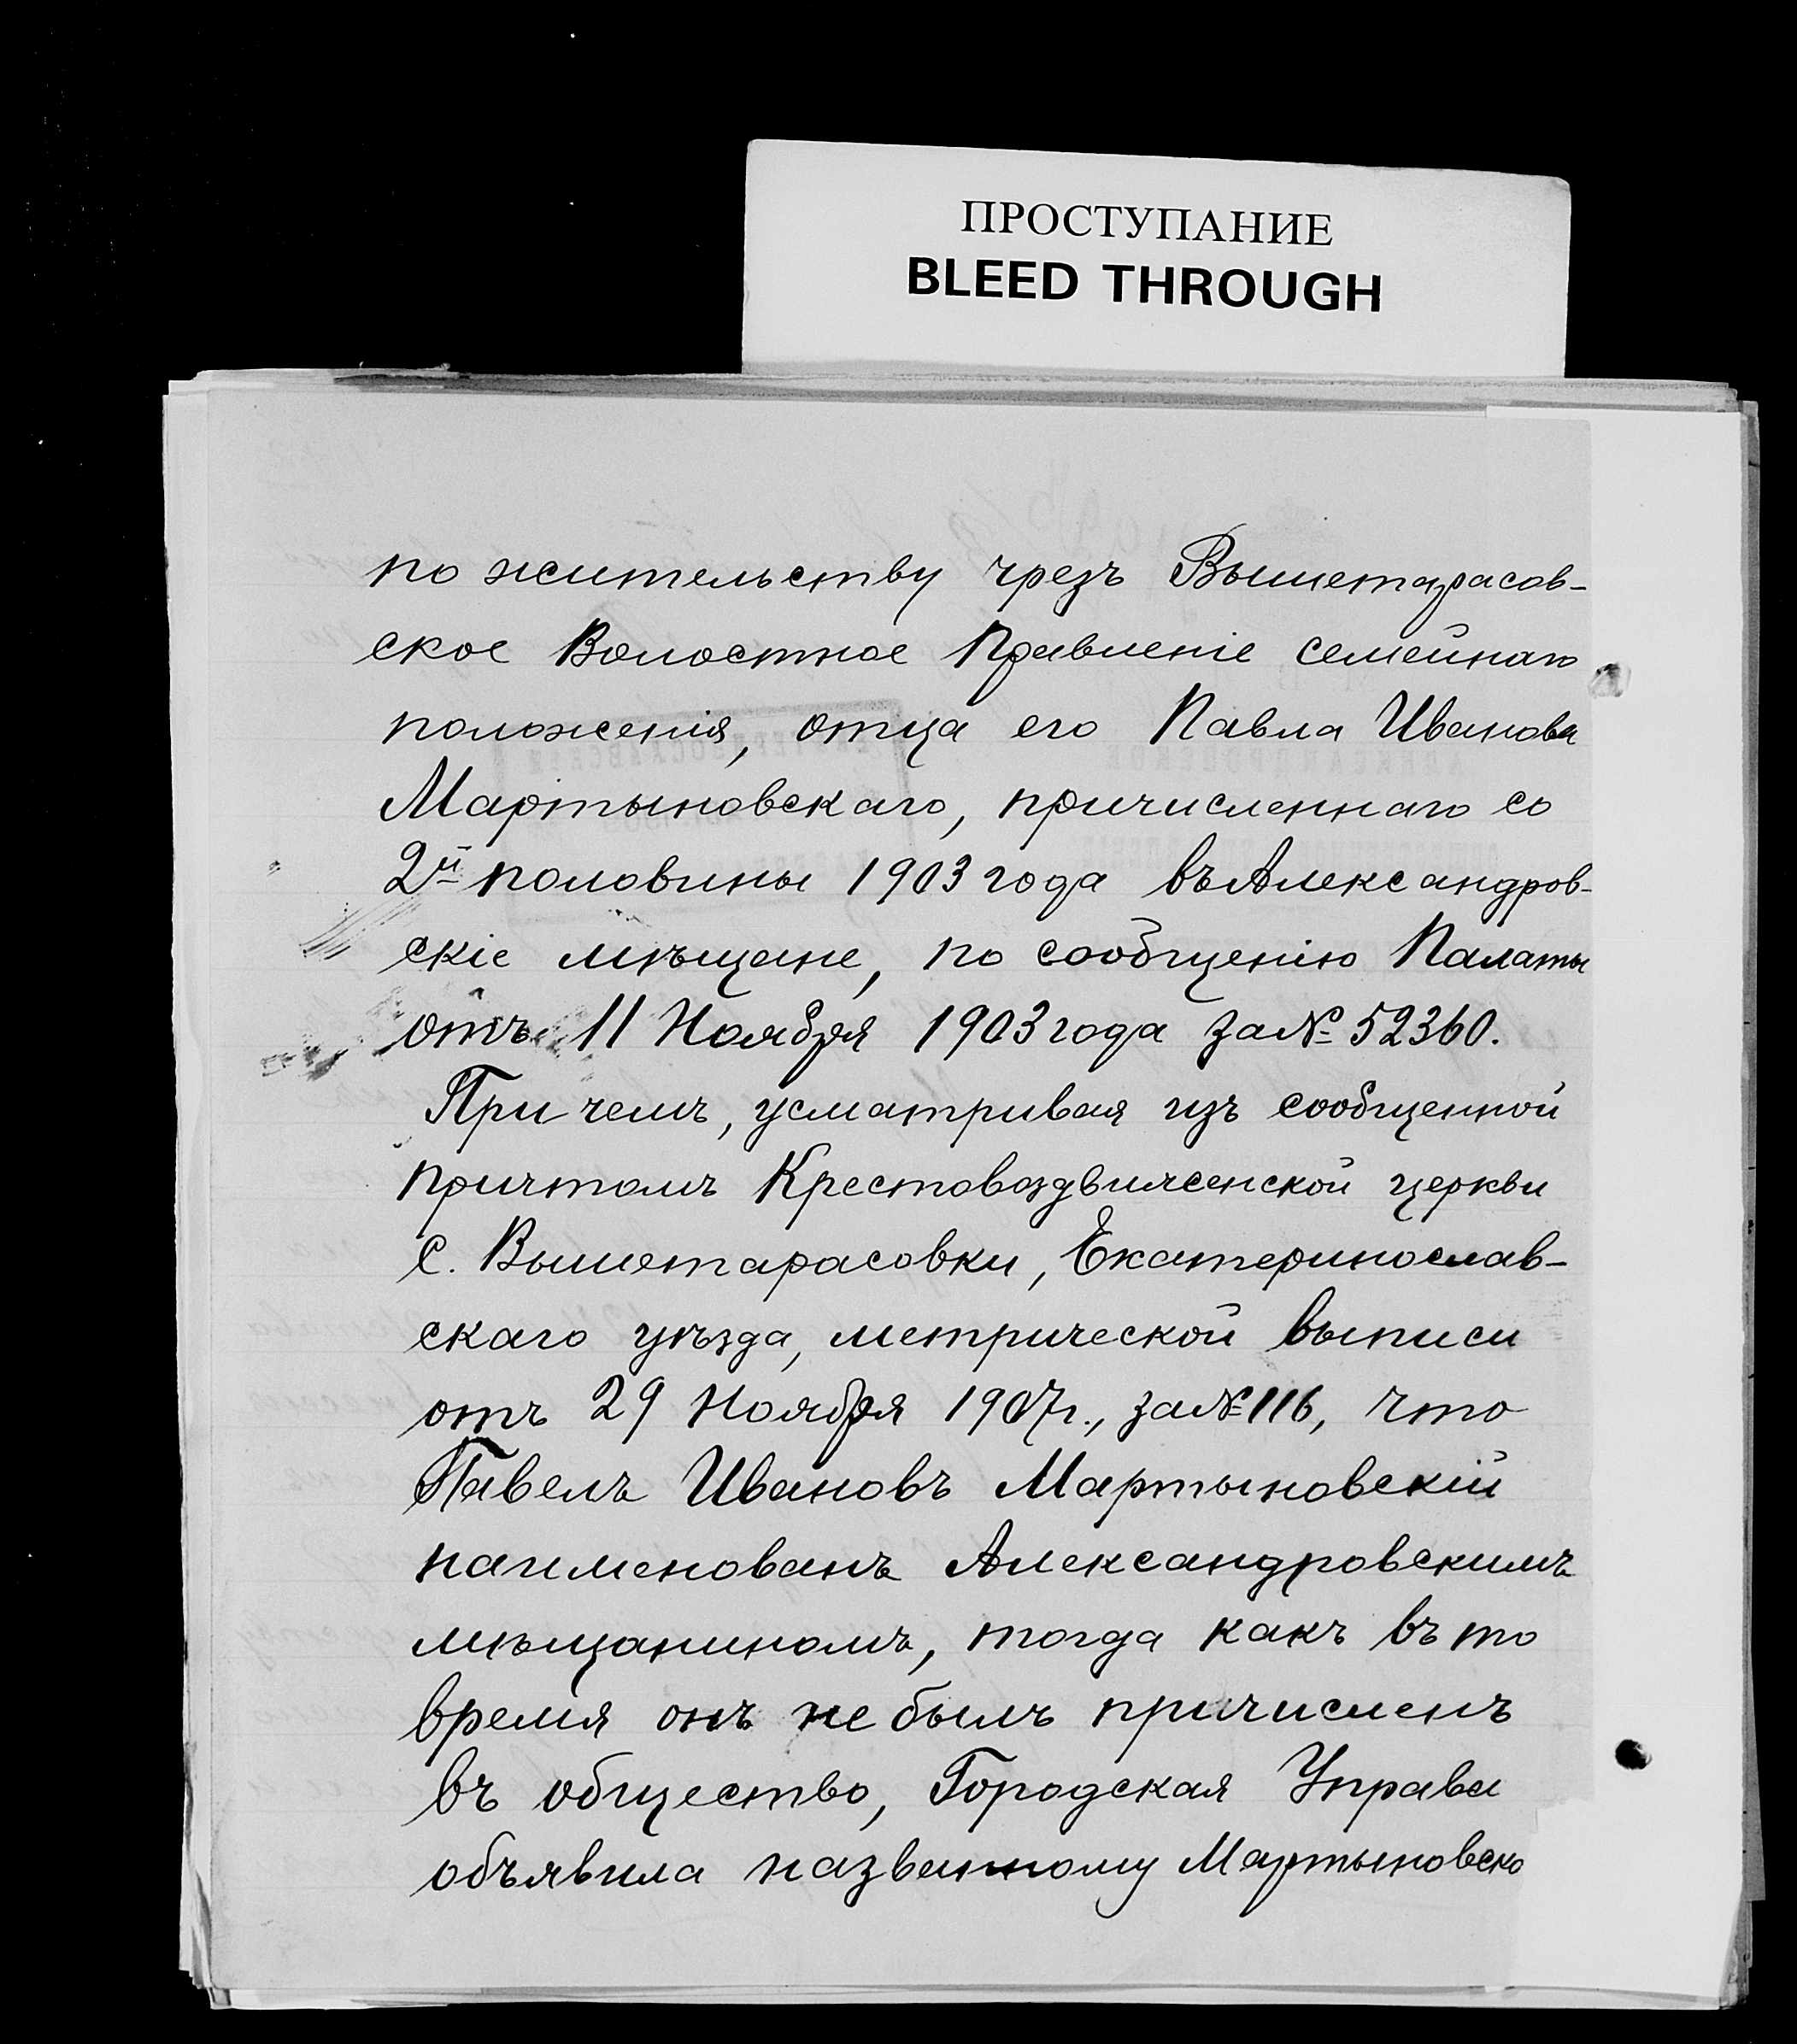 ПРОСТУПАНИЕ
BLEED THROUGH
по жительству чрезъ Вышетарасов-
ское Волостное Правленіе семейнаго
положенія, отца его Павла Иванова
Мартыновскаго, причисленнаго со
2й половины 1903 года въ Александров-
скіе мѣщане, по сообщенію Палаты
отъ 11 Ноября 1903 года за № 52360.
При чемъ, усматривая изъ сообщенной
причтомъ Крестовоздвиженской церкви
с. Вышетарасовки, Екатеринослав-
скаго уѣзда, метрической выписи
отъ 29 Ноября 1907 г., за № 116, что
Павелъ Ивановъ Мартыновскій
наименованъ Александровскимъ
мѣщаниномъ, тогда какъ въ то
время онъ не былъ причисленъ
въ общество, Городская Управа
объявила названному Мартыновско